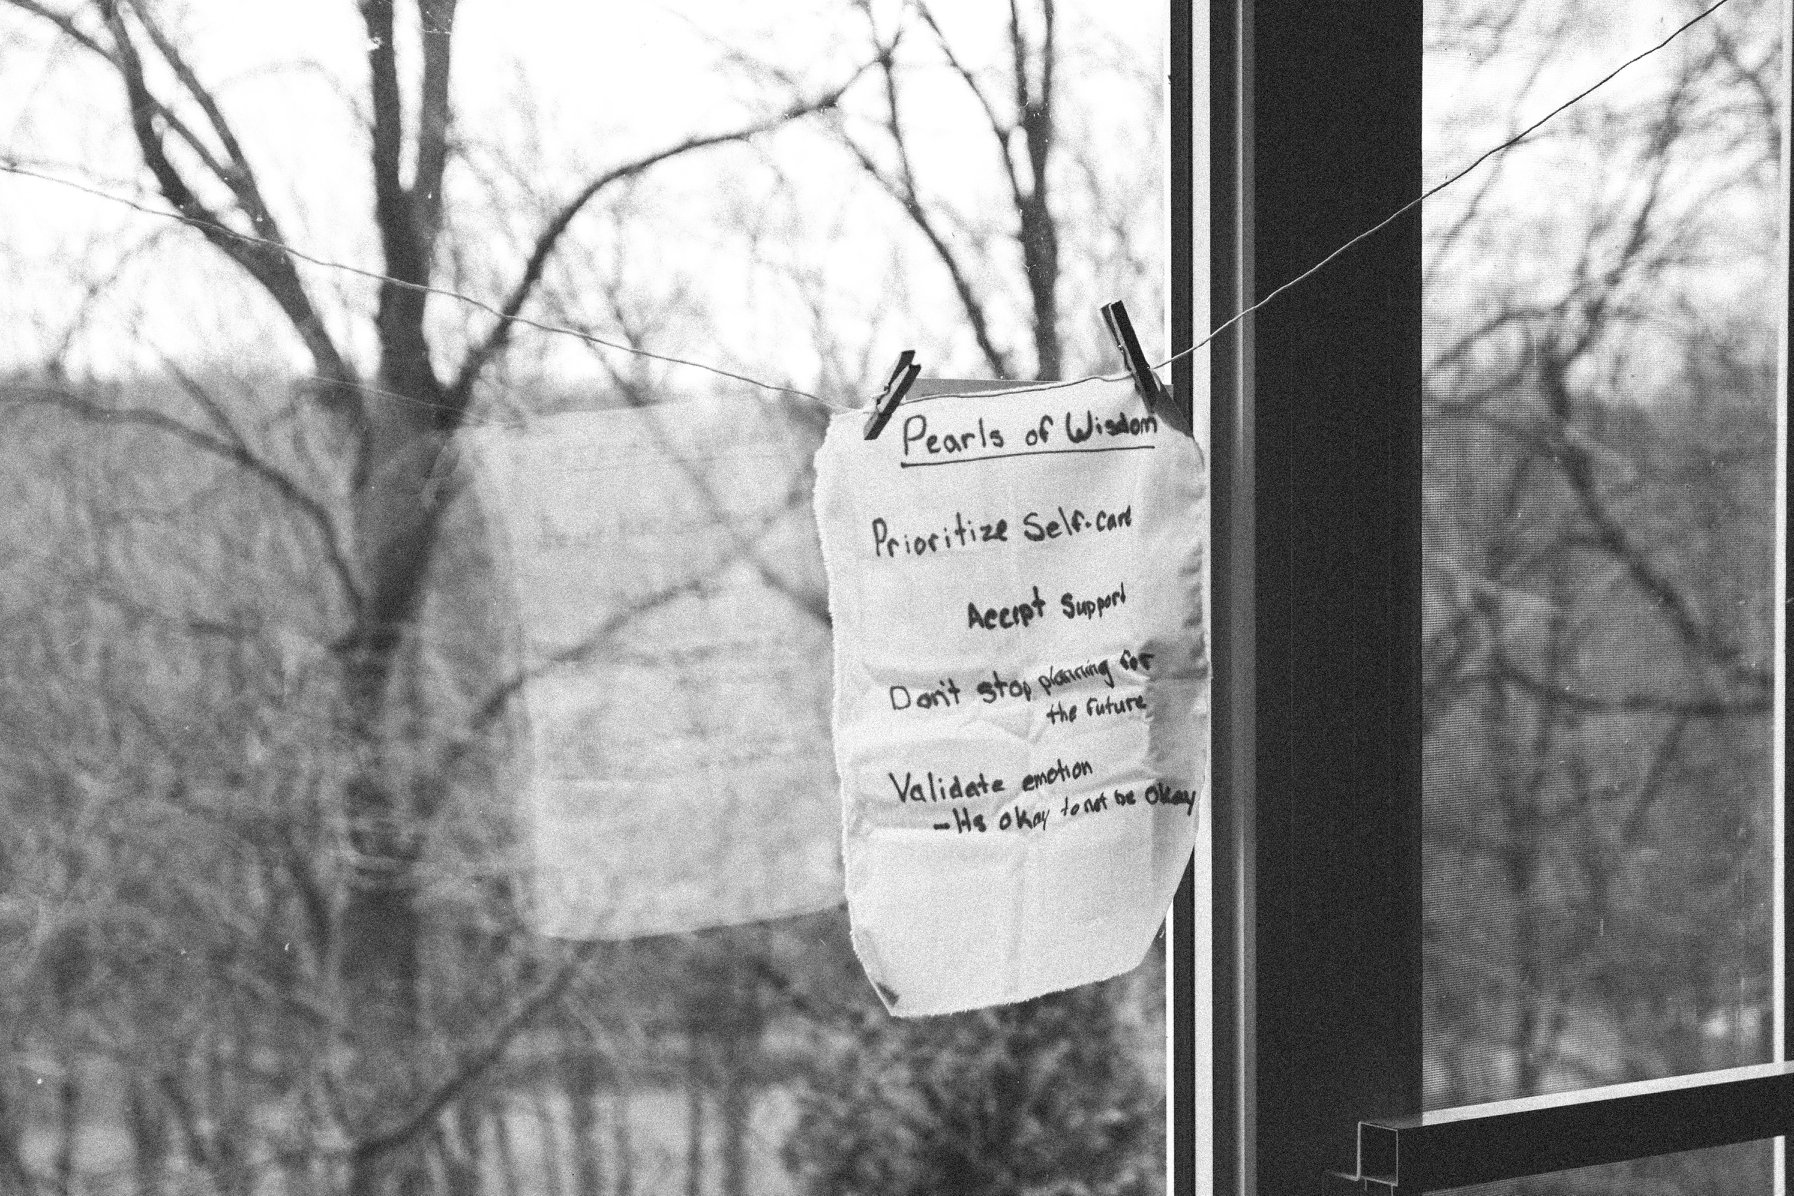 Pearls of Wisdom
Prioritize Self-care
Accept Support
Don't stop planning for
the future
Validate emotion
- It's okay to not be okay